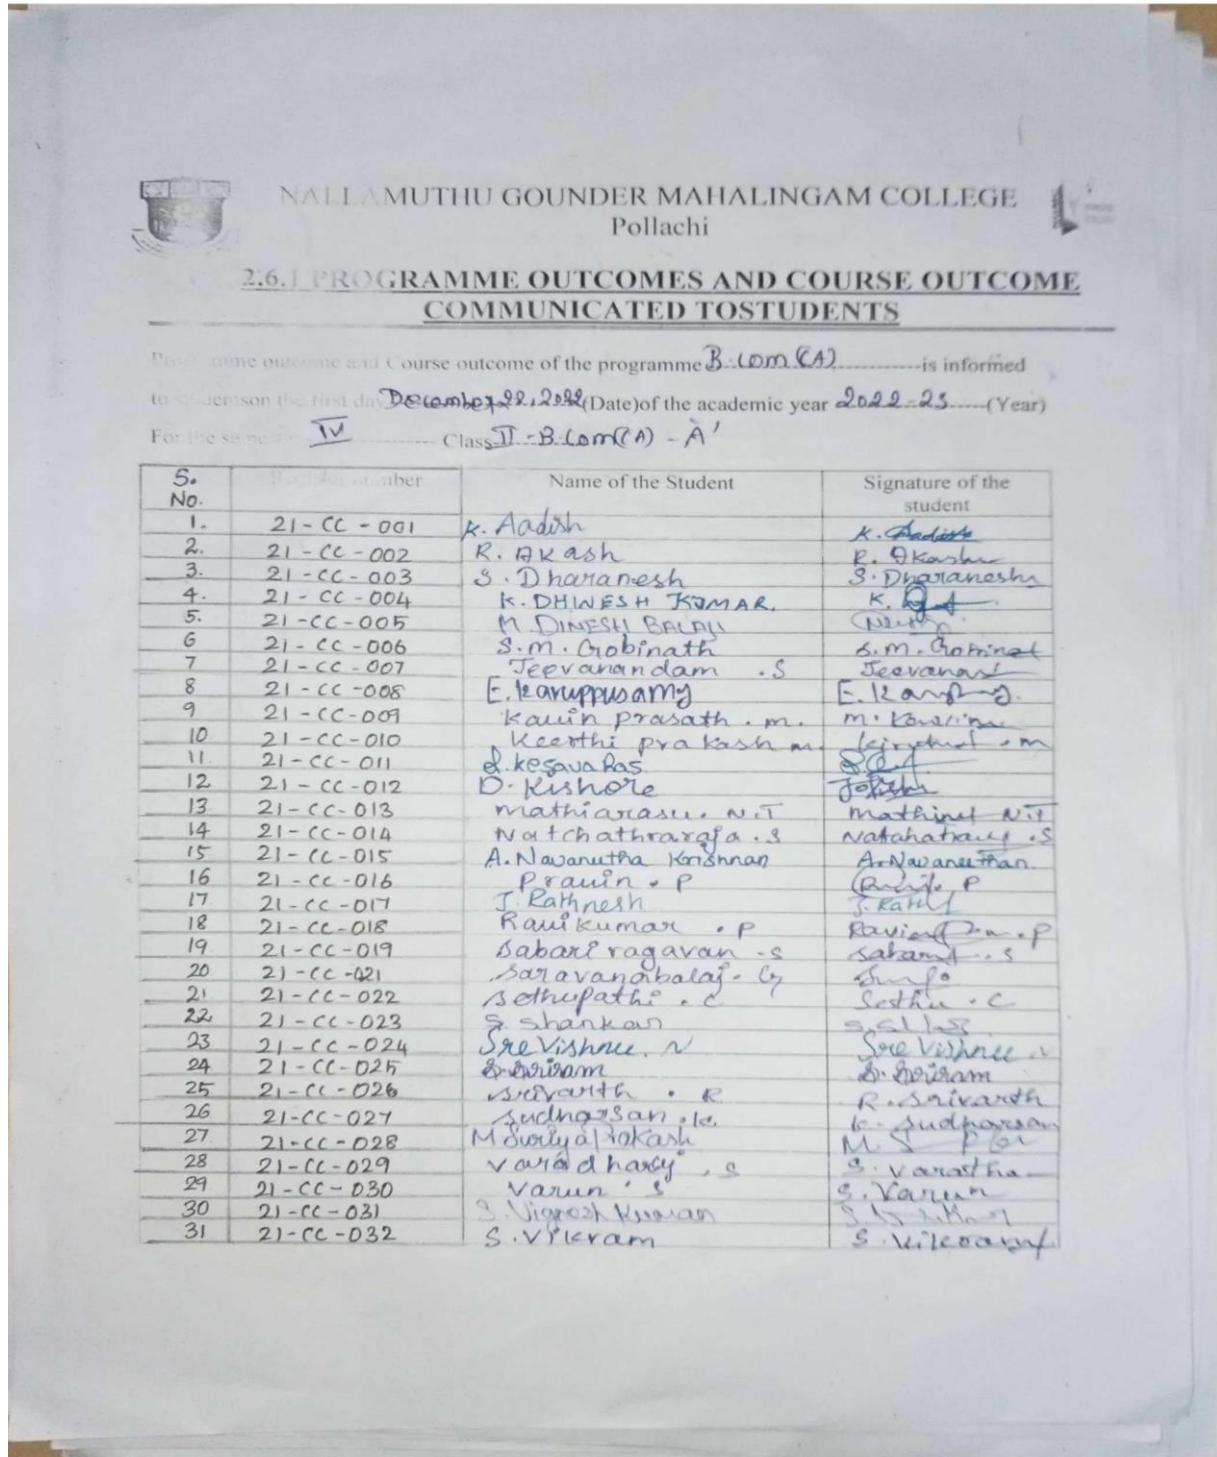 NALLAMUTHU GOUNDER MAHALINGAM COLLEGE
Pollachi
2.6.1 PROGRAMME OUTCOMES AND COURSE OUTCOME
COMMUNICATED TOSTUDENTS
Programme outcome and Course outcome of the programme B.Com (CA) is informed
to studentson the first day December 22, 2022 (Date)of the academic year 2022-23 (Year)
For the semester IV Class II - B.Com(CA) - 'A'
S. No. Register number Name of the Student Signature of the student
1. 21-CC-001 K. Aadish K. Aadish
2. 21-CC-002 R. Akash R. Akash
3. 21-CC-003 S. Dharanesh S. Dharanesh
4. 21-CC-004 K. DHINESH KUMAR. K.
5. 21-CC-005 M. DINESH BALAJI
6 21-CC-006 S.M. Gobinath S.M.
7 21-CC-007 Jeevanandam .S
8 21-CC-008 E. Karuppusamy E.
9 21-CC-009 Kavin prasath . M. M.
10 21-CC-010 Keerthi prakash M. . M
11. 21-CC-011
12 21-CC-012 D. Kishore
13 21-CC-013 Mathiarasu. N.T N.T
14 21-CC-014 Natchathraraja .S .S
15 21-CC-015 A. Navaneetha Krishnan A. Navaneethan
16 21-CC-016 Pravin . P P
17 21-CC-017 J. Rathnesh J.
18 21-CC-018 Ravikumar .P .P
19 21-CC-019 Sabari ragavan .S .S
20 21-CC-021 Saravanabalaji. G
21 21-CC-022 Sethupathi . C Sethu . C
22 21-CC-023 S. Shankar
23 21-CC-024 Sre Vishnu. N Sre Vishnu N
24 21-CC-025 S. Sriram S. Sriram
25 21-CC-026 Srivarth . R R. Srivarth
26 21-CC-027 Sudharsan .K. K. Sudharsan
27 21-CC-028 M Suriya Prakash M.
28 21-CC-029 S S.
29 21-CC-030 Varun . S S. Varun
30 21-CC-031 S. Vignesh Kumaran S.
31 21-CC-032 S. Vikram S.